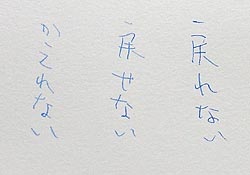 戻れない
戻せない
かえれない